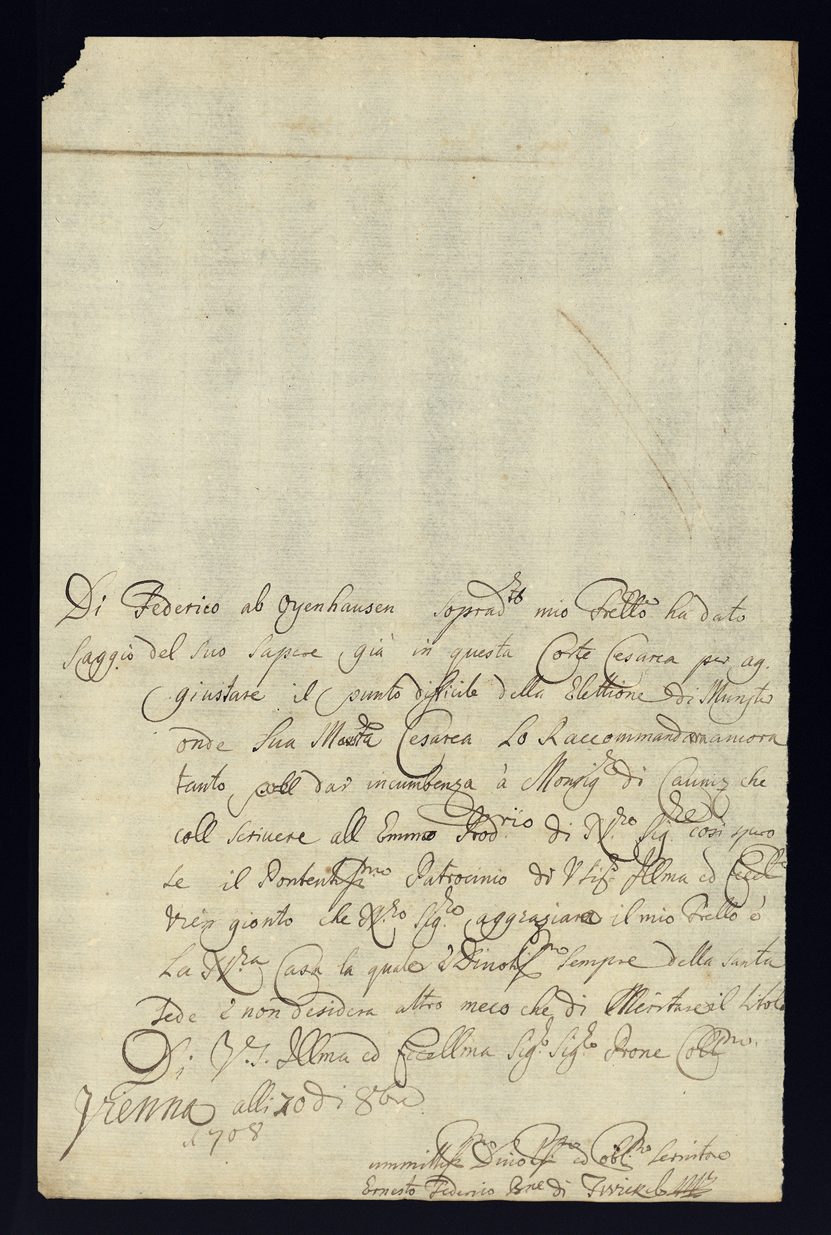 Di Federico ab Oyenhausen sopradto mio Frello ha dato
saggio del suo sapere già in questa Corte Cesarea per ag.
giustare il punto difficile della Elettione di Munster
onde sua Maestà Cesarea Lo Raccommanda ancora
tanto dar incumbenza à Monsigre di Cauniz che
coll scrivere all Emmo di Nro Sigre così spero
se il Patrocinio di VSiga Illma ed Eccelma
vien gionto che Nro Sigro aggraziara il mio Frello é
La Nra Casa la quale è sempre della santa
sede è non desidera altro meco che di Meritare il titolo
Di V.S. Illma ed Eccellma Sigre Sigre Prone Collmo.
Vienna alli 20 di 8bre
1708
ummilissmo Divotissmo ed obligmo servitore
Ernesto Federico Bne di